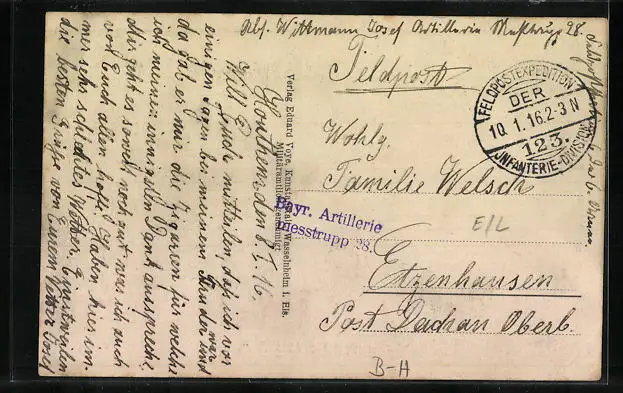 Abs. Wittmann Josef Artillerie Meßtrupp 28.
Feldpost
FELDPOSTEXPEDITION
DER
10.1.16.2-3 N
123.
INFANTERIE-DIVISION
Wohlg.
Familie Welsch
E/L
Etzenhausen
Post Dachau Oberb.
B-H
Bayr. Artillerie
messtrupp 28.
Verlag Eduard Voye, Wasselnheim i. Els.
Militäramtlich genehmigt
Houthem den 8/I.16.
Will Euch mitteilen, daß ich vor
einigen Tagen bei meinem Bruder war und
da gab er mir die Zigarren für welche
ich meinen innigsten Dank ausspreche.
Mir geht es soweit noch gut was ich auch
von Euch allen hoffe. Haben hier im-
mer sehr schlechtes Wetter. Einstweilen
die besten Grüße von Eurem Vetter Josef